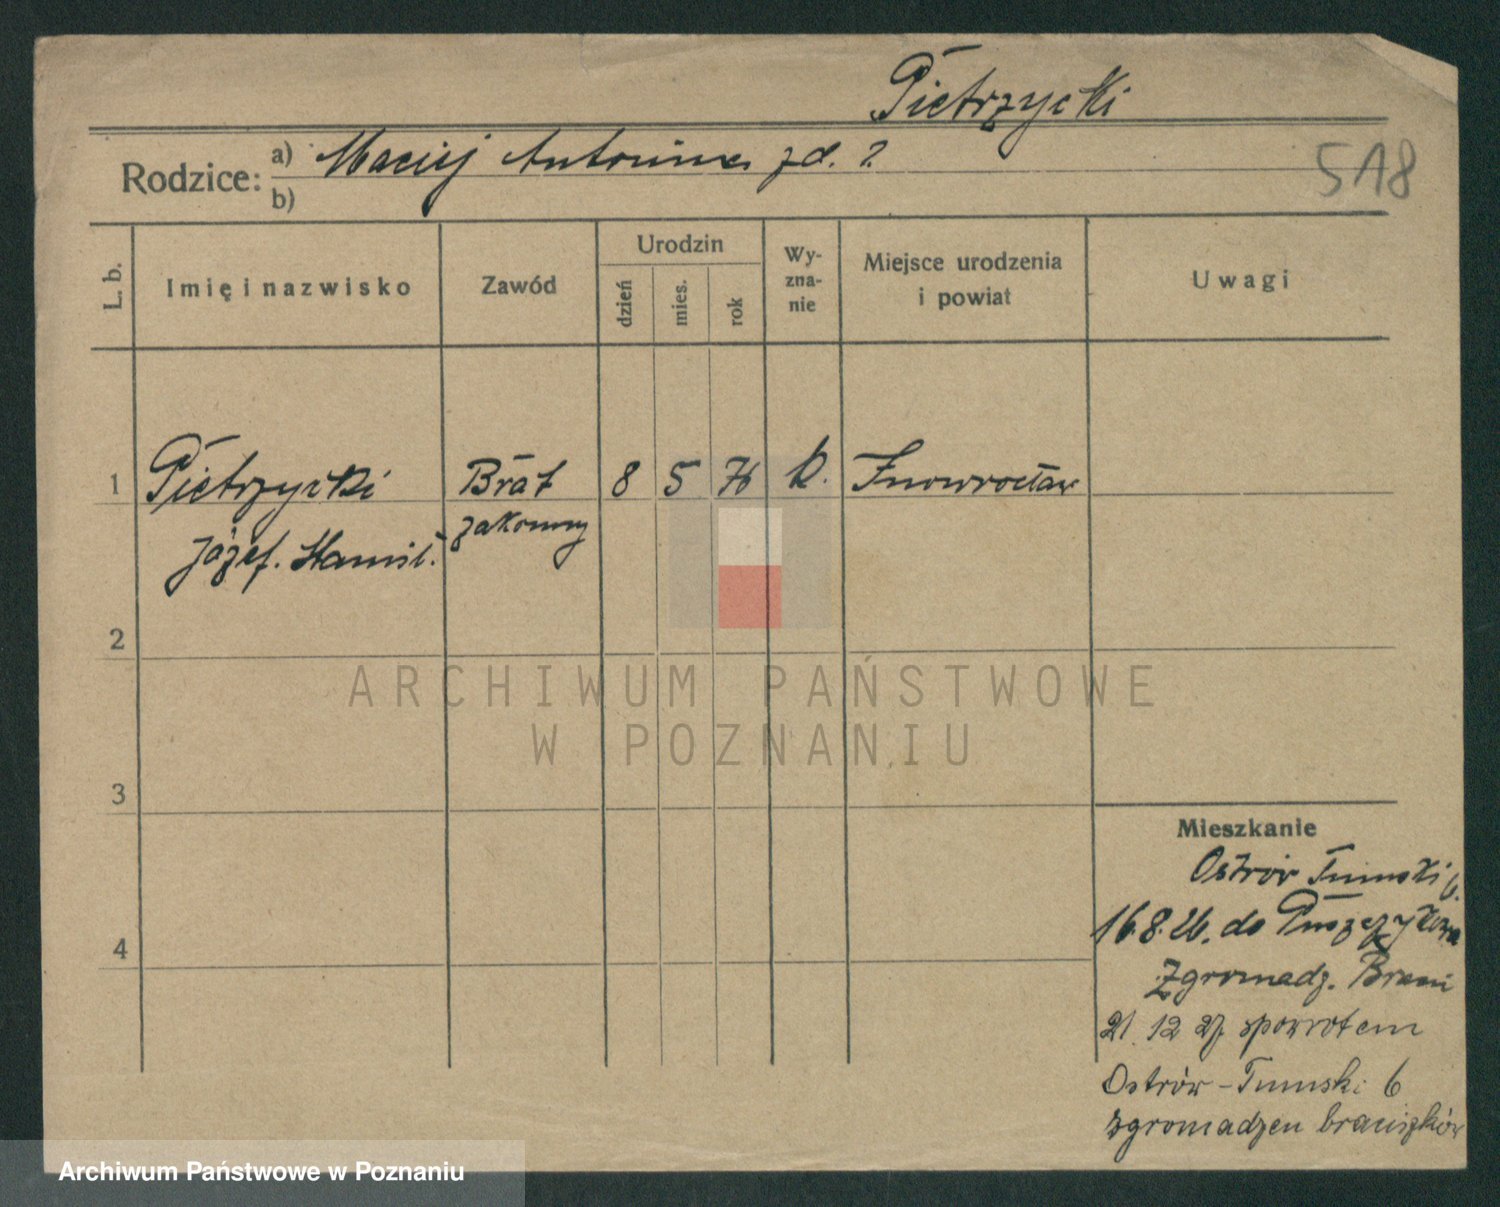 Pietrzycki
518
Rodzice: a) Maciej Antonina zd. ?
b)
L. b.
Imię i nazwisko
Zawód
Urodzin
dzień
mies.
rok
Wy-
zna-
nie
Miejsce urodzenia
i powiat
Uwagi
1 Pietrzycki Brat 8 5 76 k. Inowrocław
Józef. Stanisł. zakonny
2
3
4
ARCHIWUM PAŃSTWOWE
W POZNANIU
Mieszkanie
Ostrów Tumski 6.
16.8.26. do Puszczykowa
Zgromadz. Braci
21. 12 27 spowrotem
Ostrów - Tumski 6
zgromadzen braciszków
Archiwum Państwowe w Poznaniu